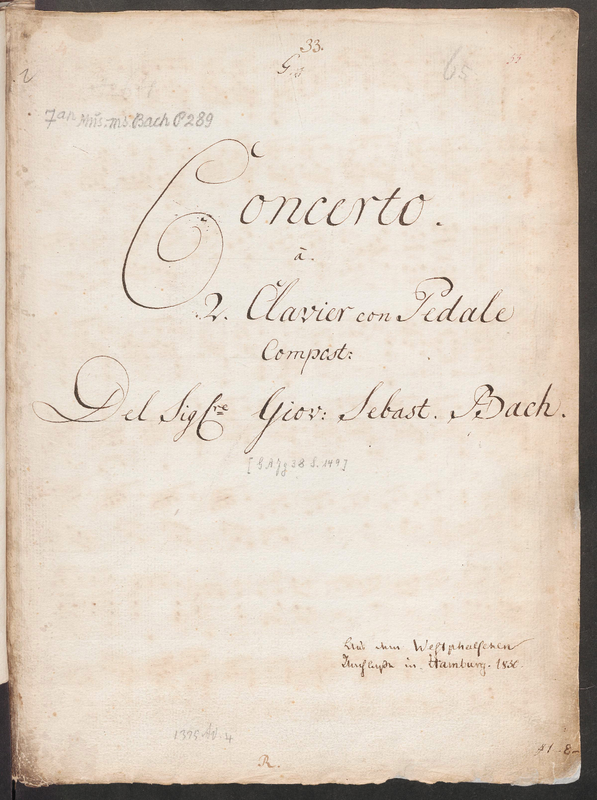 33.
65
33
7an Mus. ms Bach P 289
Concerto.
à.
2. Clavier con Pedale
Compost:
Del Sigre Giov: Sebast. Bach.
[B.A. Jg 38 S. 149]
Aus dem Westphalschen
Nachlasse in Hamburg. 1830.
R.